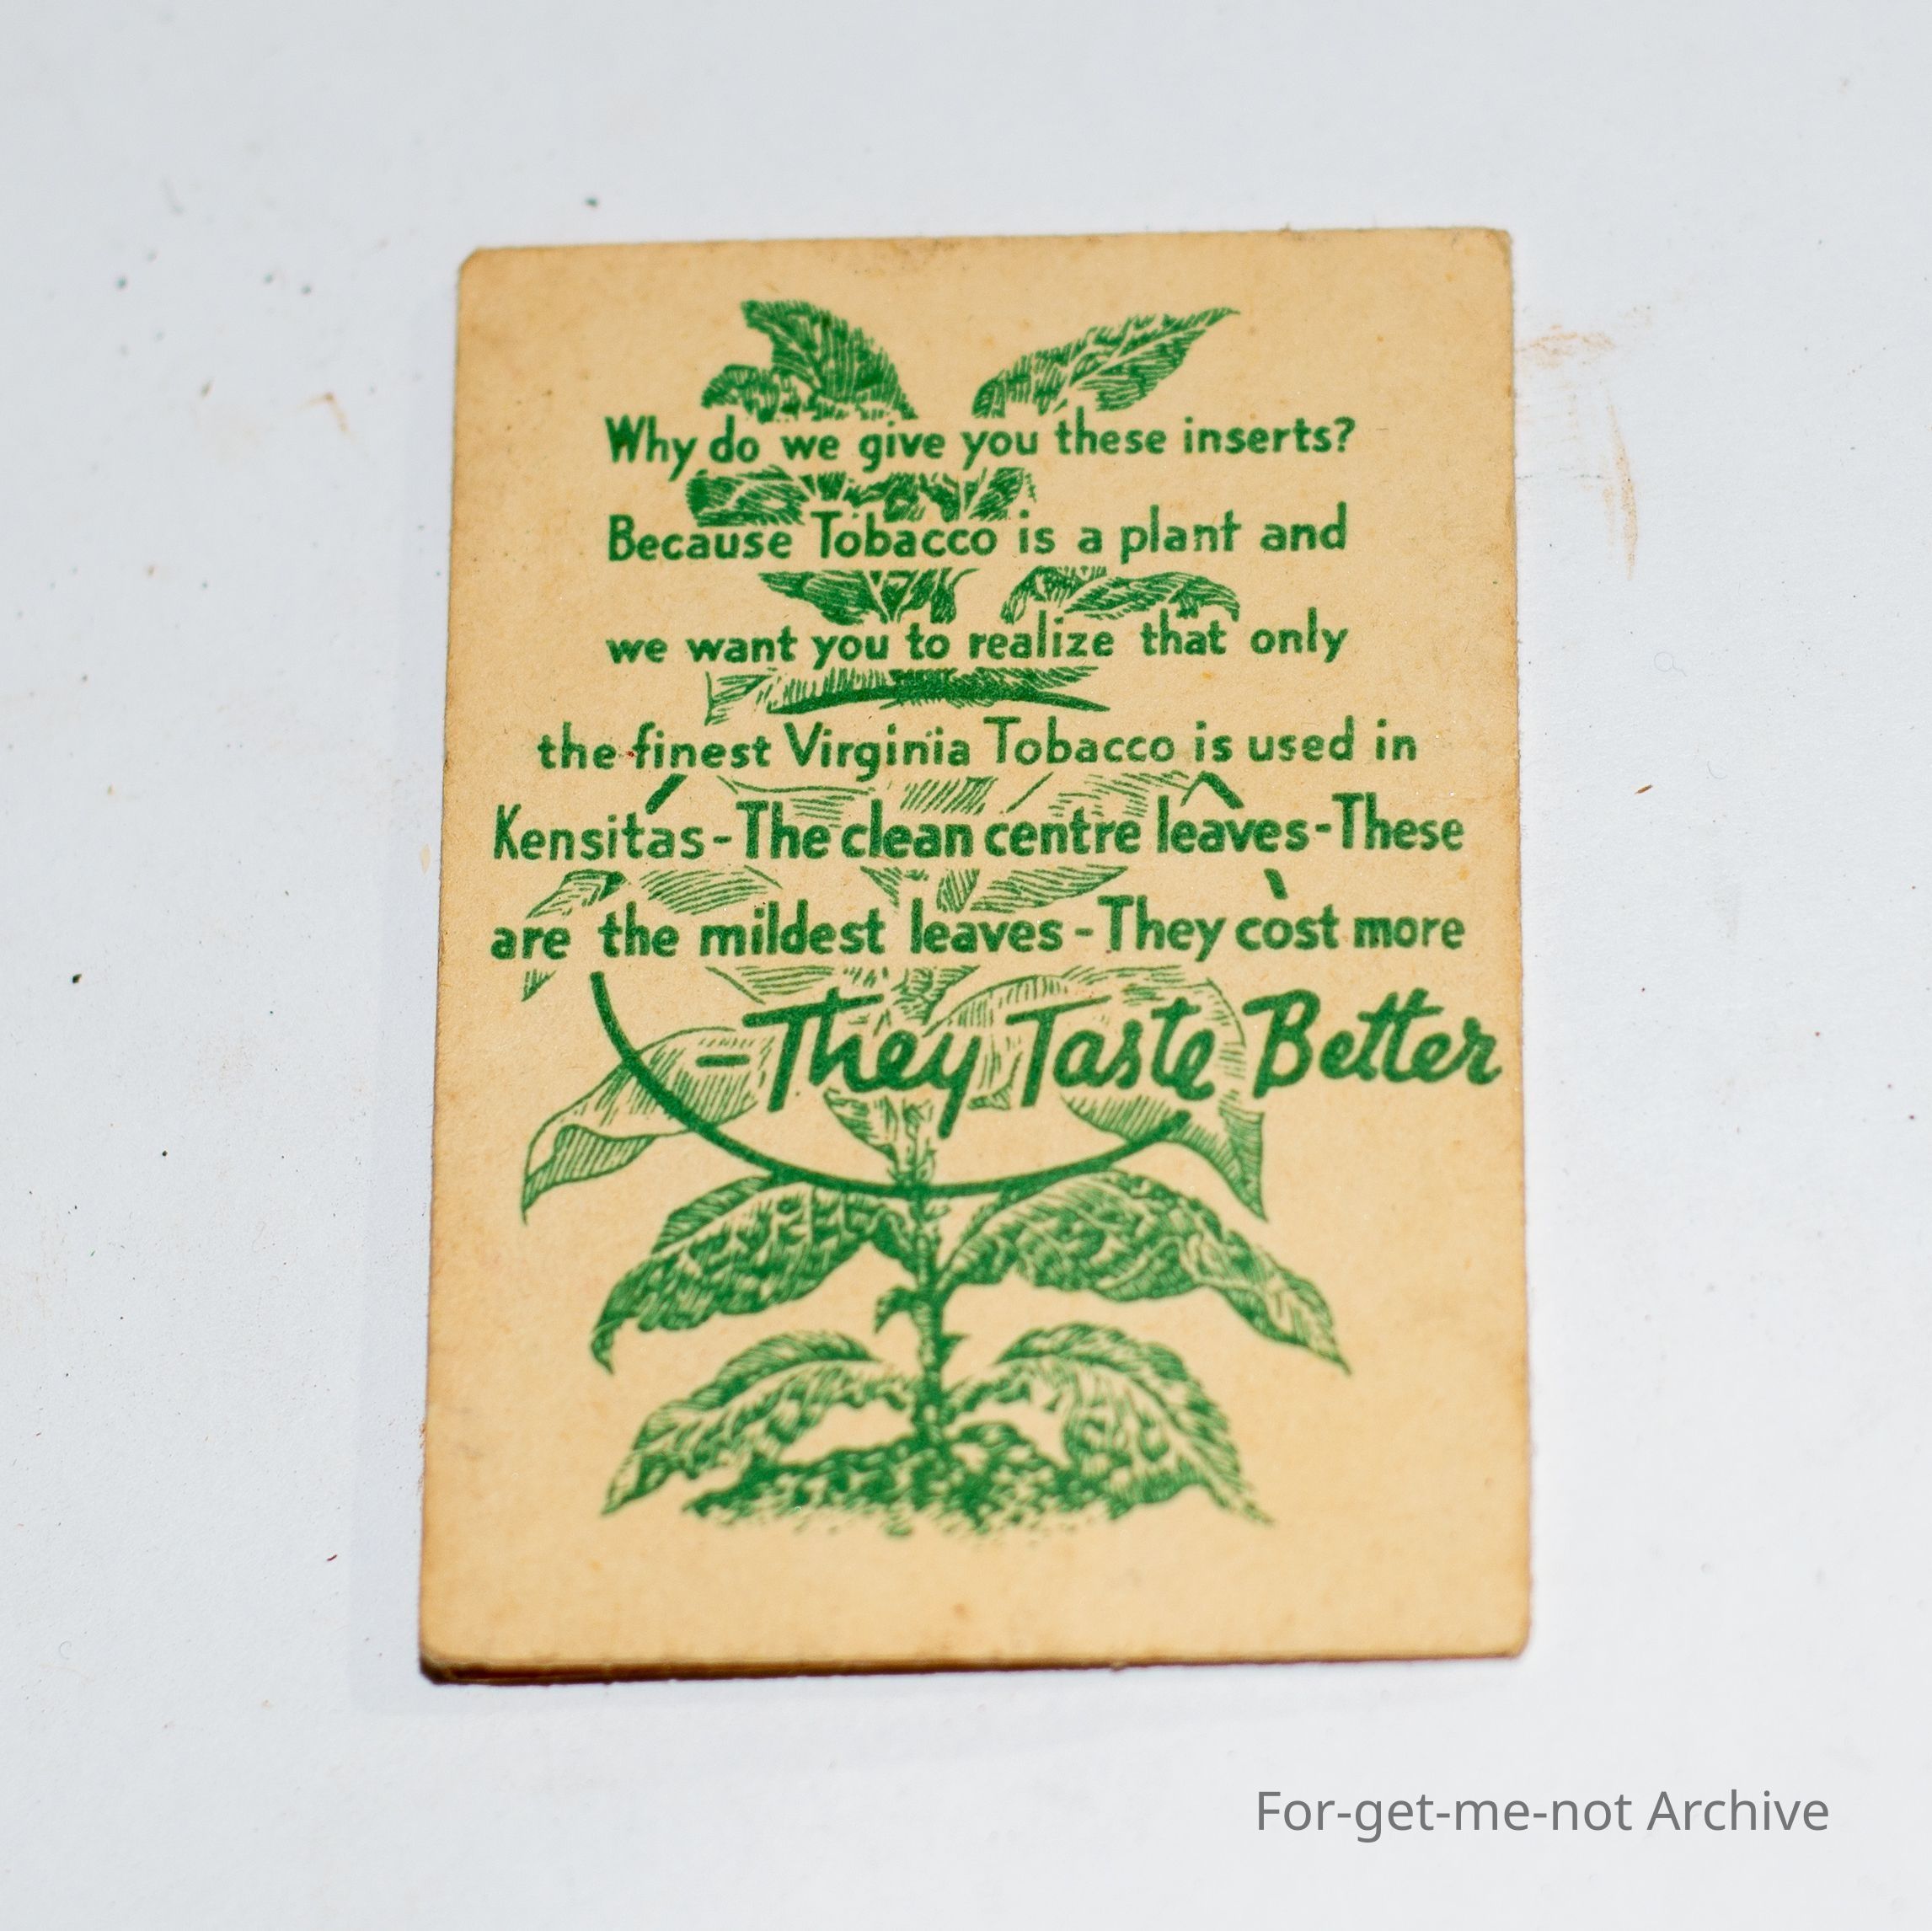 Why do we give you these inserts?
Because Tobacco is a plant and
we want you to realize that only
the finest Virginia Tobacco is used in
Kensitas - The clean centre leaves - These
are the mildest leaves - They cost more
- They Taste Better
For-get-me-not Archive